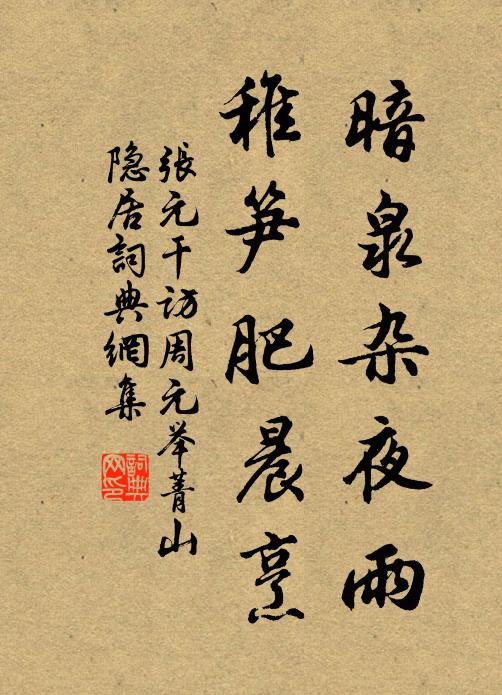 暗泉杂夜雨
稚笋肥晨烹
張元干访周元举菁山
隐居詞典網集
詞典
网印